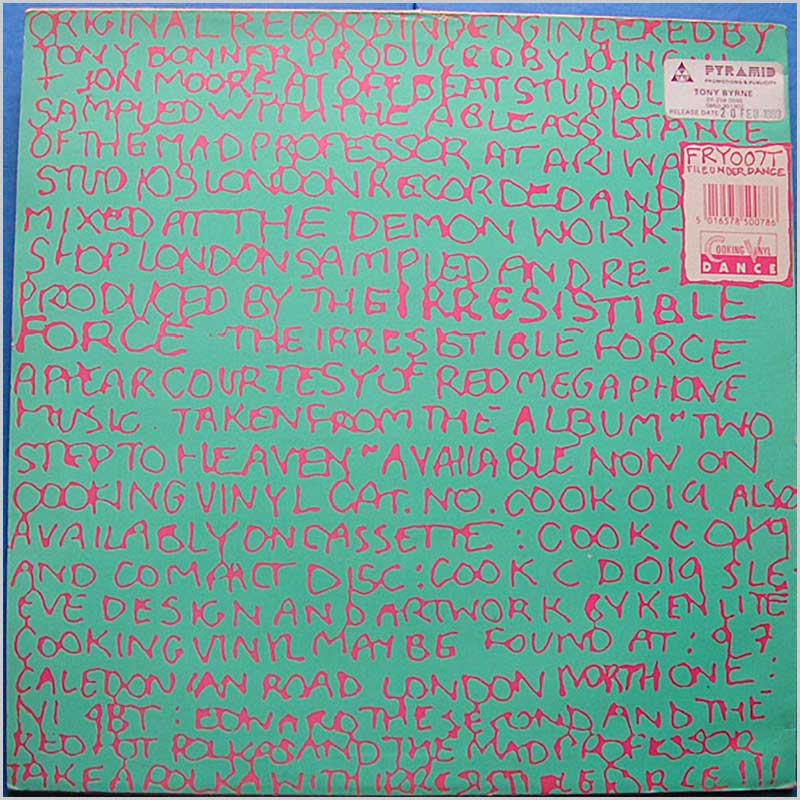 ORIGINAL RECORDING ENGINEERED BY
TONY BONNER PRODUCED BY JOHN
+ JON MOORE AT OFFBEAT STUDIO
SAMPLED WITH THE ABLE ASSISTANCE
OF THE MAD PROFESSOR AT ARIWA
STUDIOS LONDON RECORDED AND
MIXED AT THE DEMON WORK-
SHOP LONDON SAMPLED AND RE-
PRODUCED BY THE IRRESISTIBLE
FORCE · THE IRRESISTIBLE FORCE
APPEAR COURTESY OF RED MEGAPHONE
MUSIC. TAKEN FROM THE ALBUM "TWO
STEP TO HEAVEN" AVAILABLE NOW ON
COOKING VINYL CAT. NO. COOK 019 ALSO
AVAILABLY ON CASSETTE : COOK C 019
AND COMPACT DISC : COOK CD 019 SLE-
EVE DESIGN AND ARTWORK BY KEN LITE
COOKING VINYL MAY BE FOUND AT : 97
CALEDONIAN ROAD LONDON NORTH ONE :
N1 9BT : EDWARD THE SECOND AND THE
RED HOT POLKAS AND THE MAD PROFESSOR
TAKE A POLKA WITH IRRESISTIBLE FORCE !!!
PYRAMID
PROMOTIONS & PUBLICITY
TONY BYRNE
RELEASE DATE 20 FEB 1989
FRY007T
FILE UNDER DANCE
5 016578 500786
COOKING VINYL
DANCE